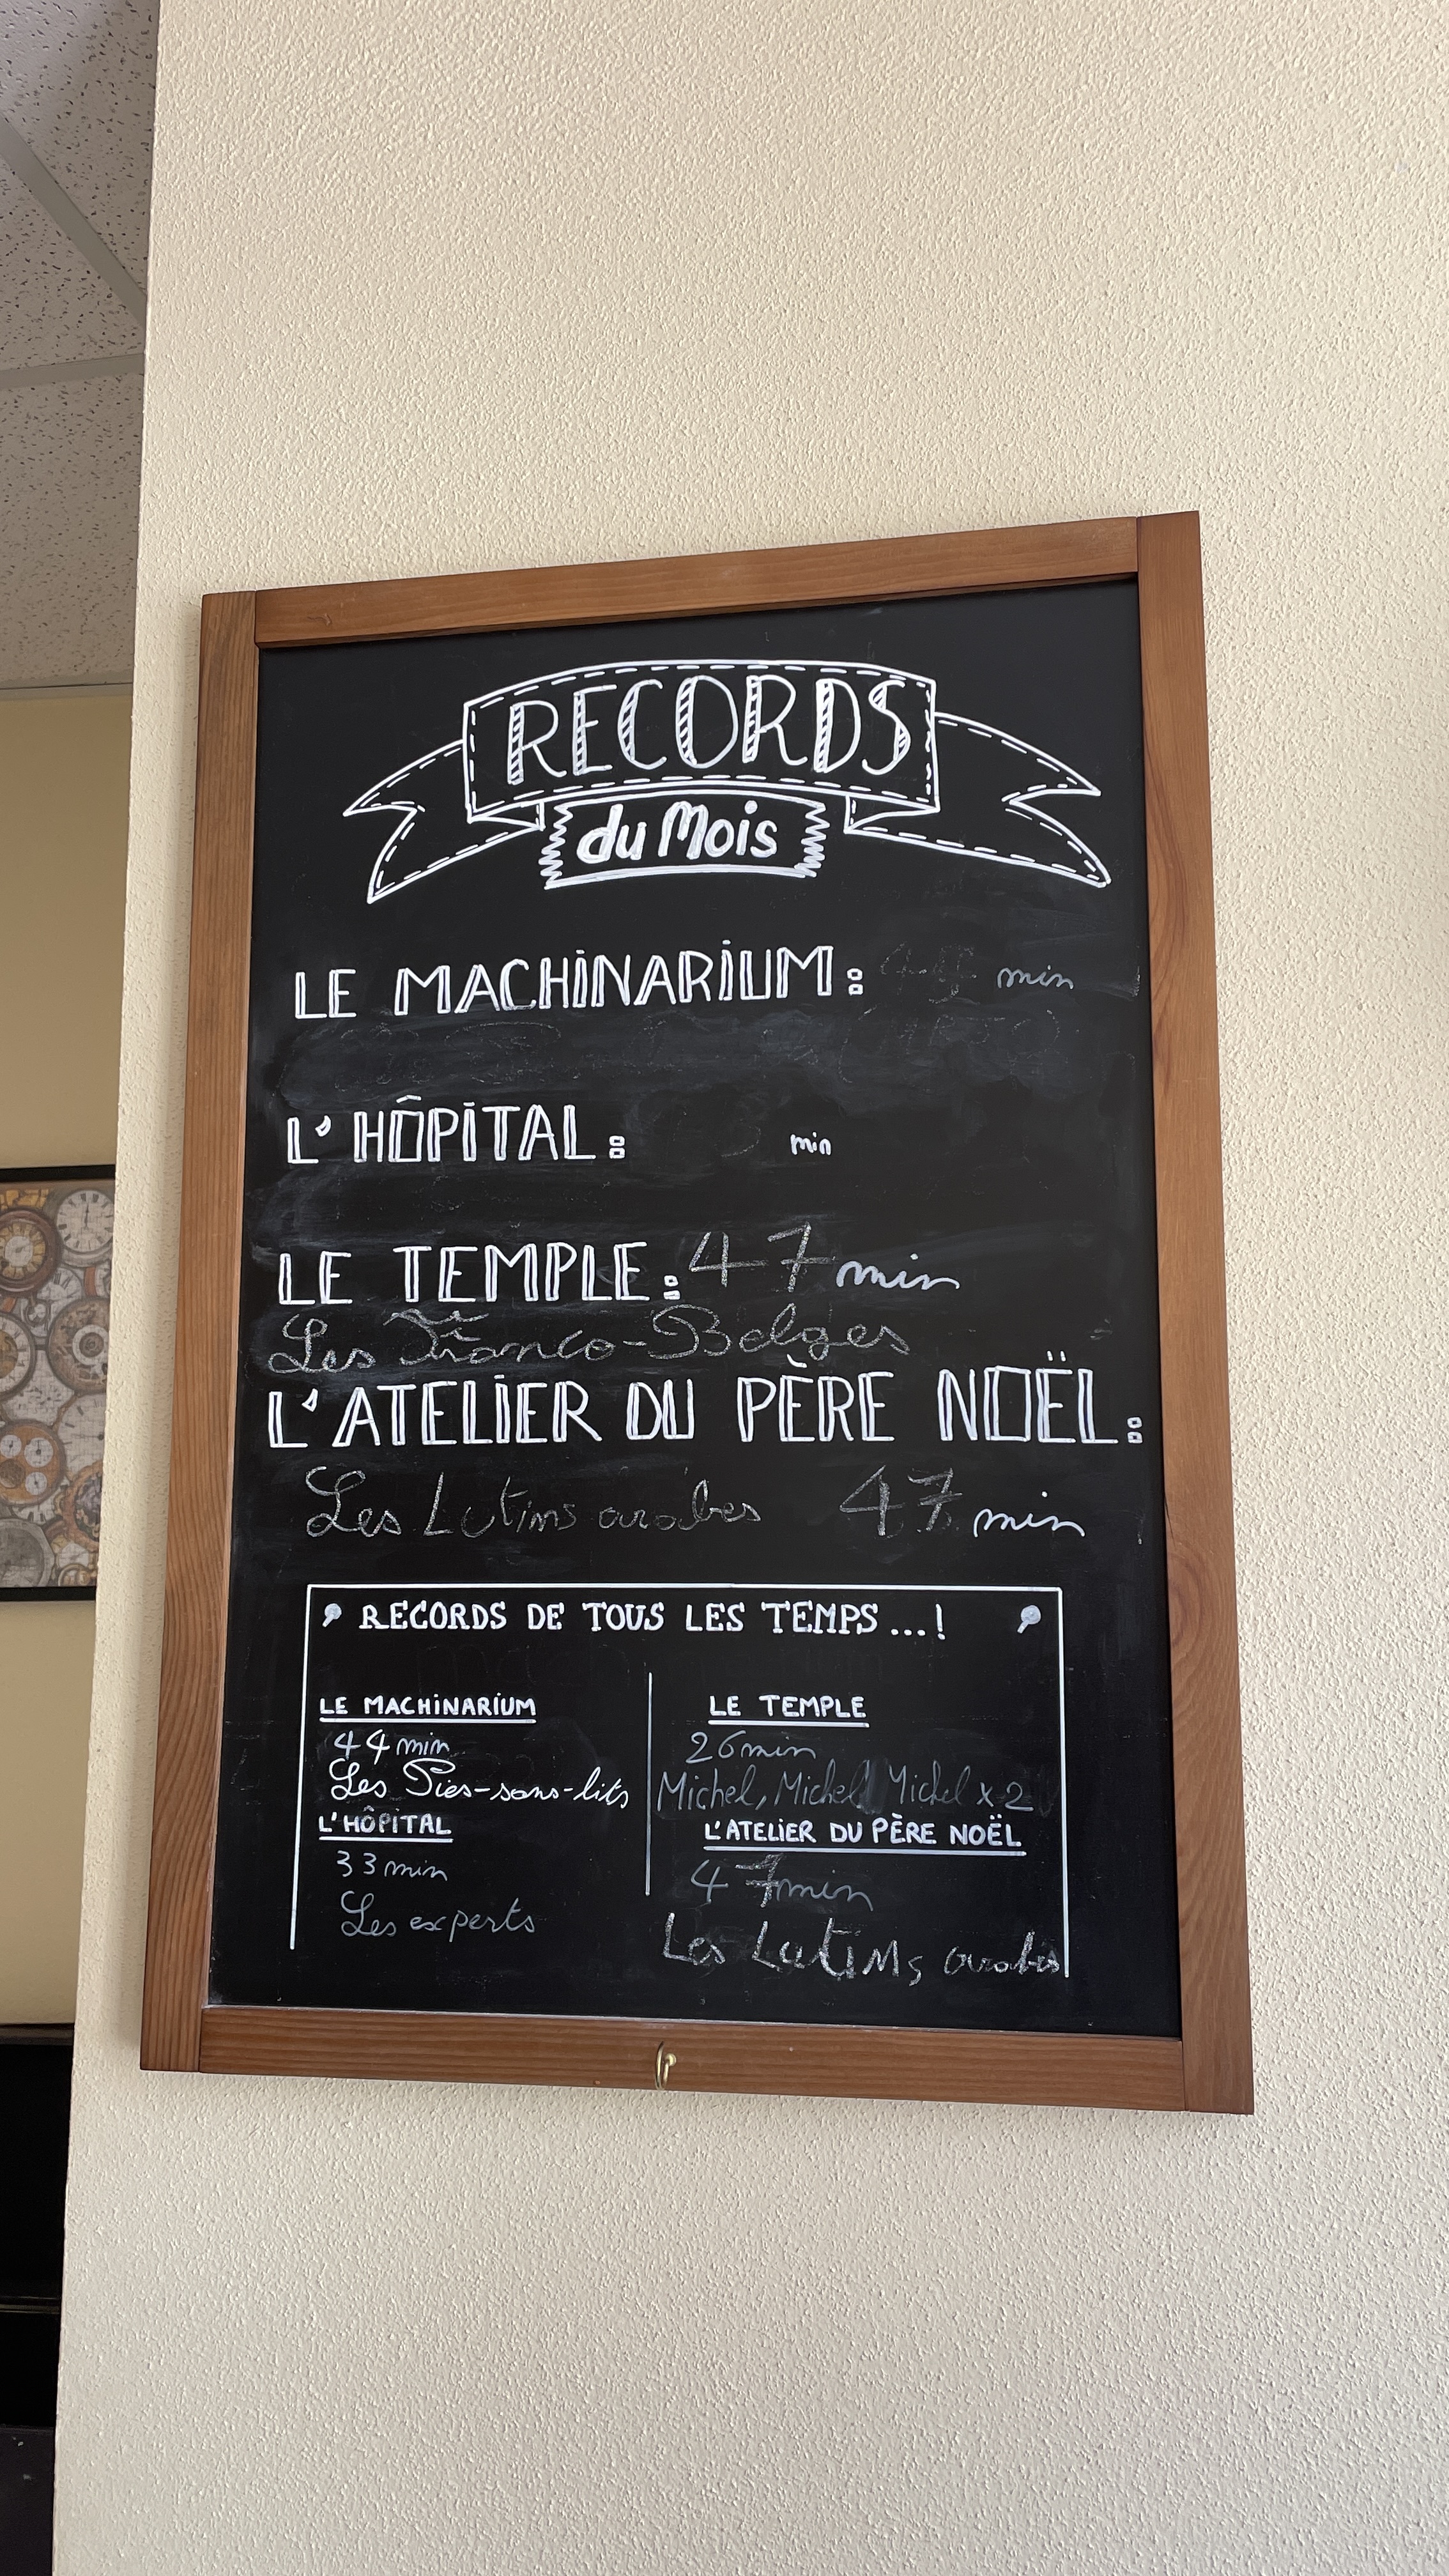 RECORDS
du Mois
LE MACHINARIUM : min
L'HÔPITAL : min
LE TEMPLE : 47 min
Les Franco-Belges
L'ATELIER DU PÈRE NOËL :
Les Lutins arabes 47 min
RECORDS DE TOUS LES TEMPS...!
LE MACHINARIUM
44 min
Les Pies-sans-lits
L'HÔPITAL
33 min
Les experts
LE TEMPLE
26 min
Michel, Michel, Michel x 2
L'ATELIER DU PÈRE NOËL
47 min
Les Lutins arabes